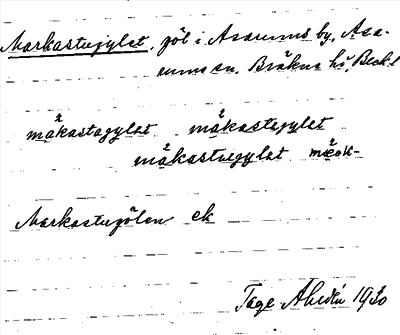 Markastugylet, göl i Asarums by, Asa-
rums sn, Bräkne hd, Blek.
måkastogylet måkastegylet
måkastuegylet måok-
Markastugölen ek
Tage Ahldén 1930